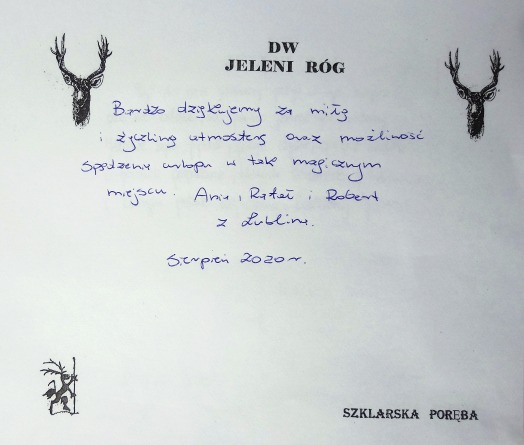 DW
JELENI RÓG
Bardzo dziękujemy za miłą
i życzliwą atmosferę oraz możliwość
spędzenia urlopu w tak magicznym
miejscu. Ania, Rafał i Robert
z Lublina.
Sierpień 2020 r.
SZKLARSKA PORĘBA